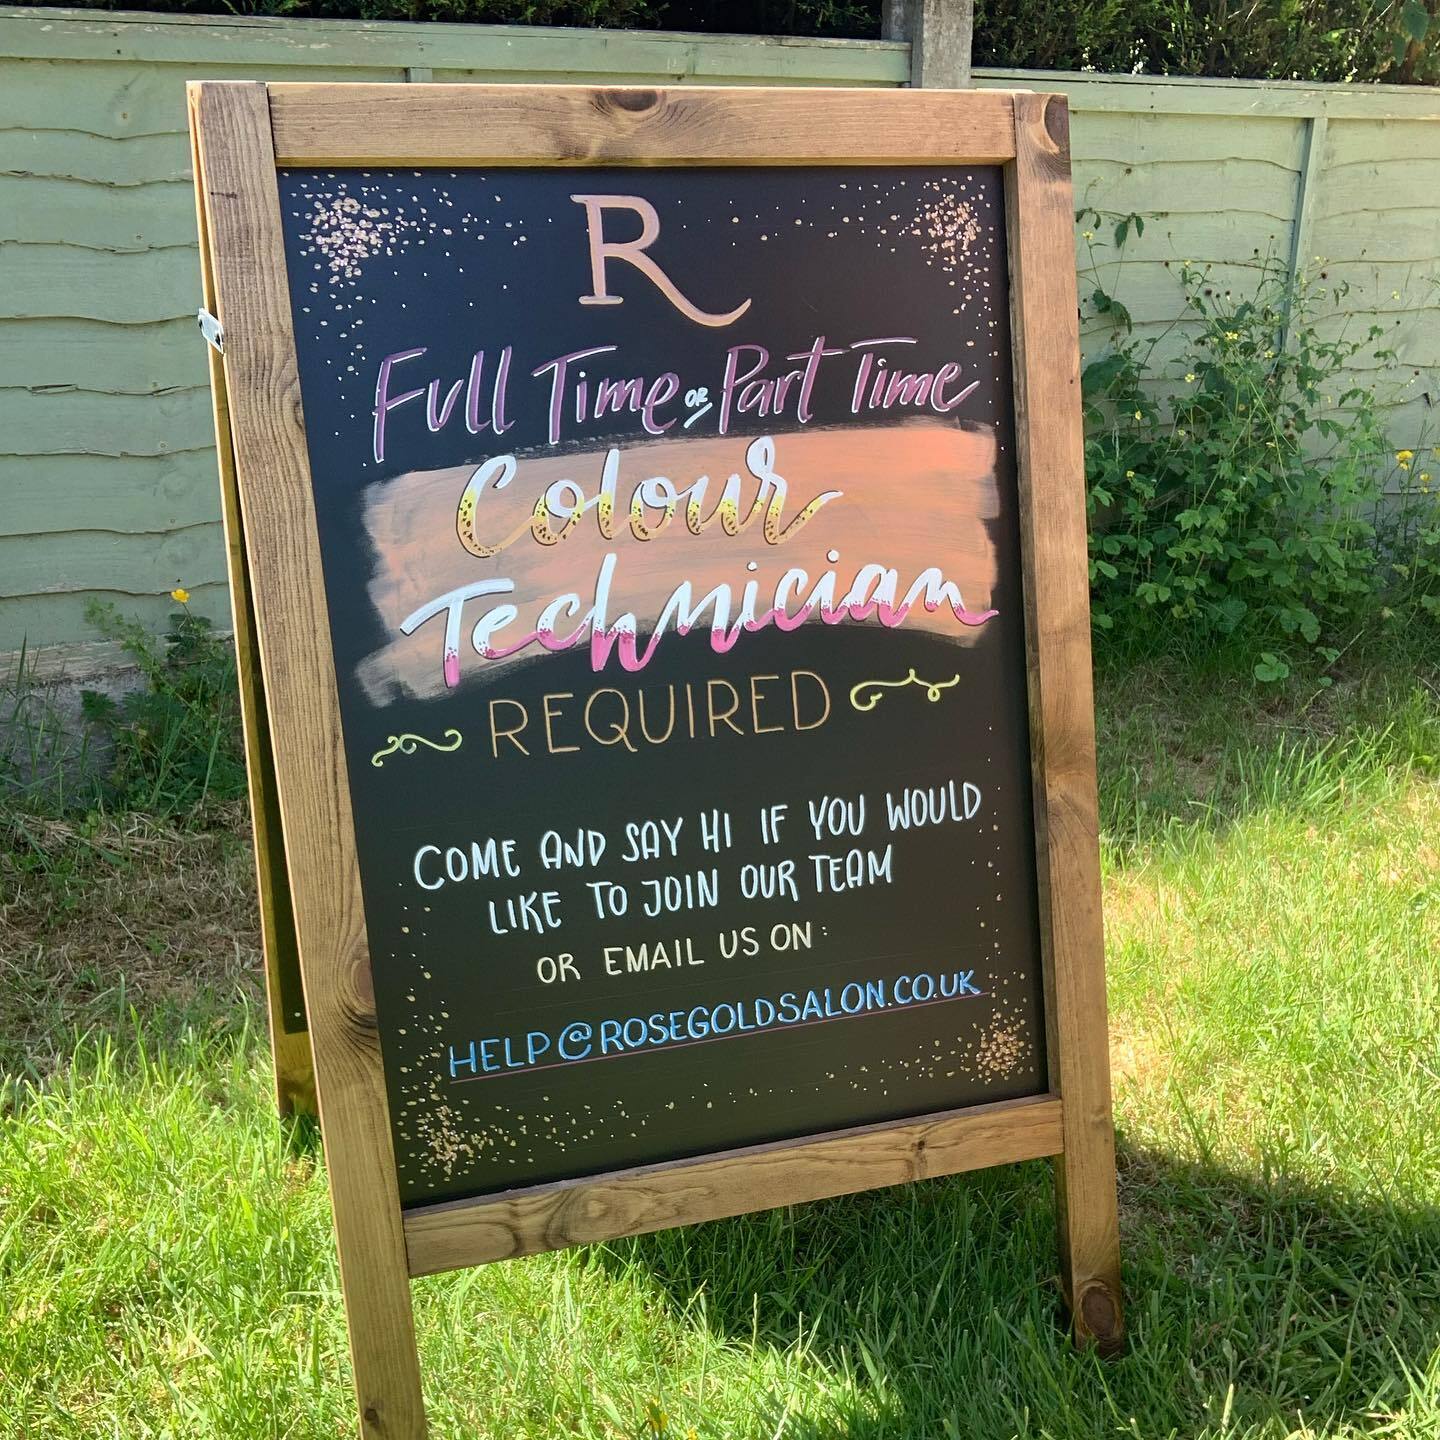 R
Full Time OR Part Time
Colour
Technician
REQUIRED
COME AND SAY HI IF YOU WOULD
LIKE TO JOIN OUR TEAM
OR EMAIL US ON:
HELP@ROSEGOLDSALON.CO.UK